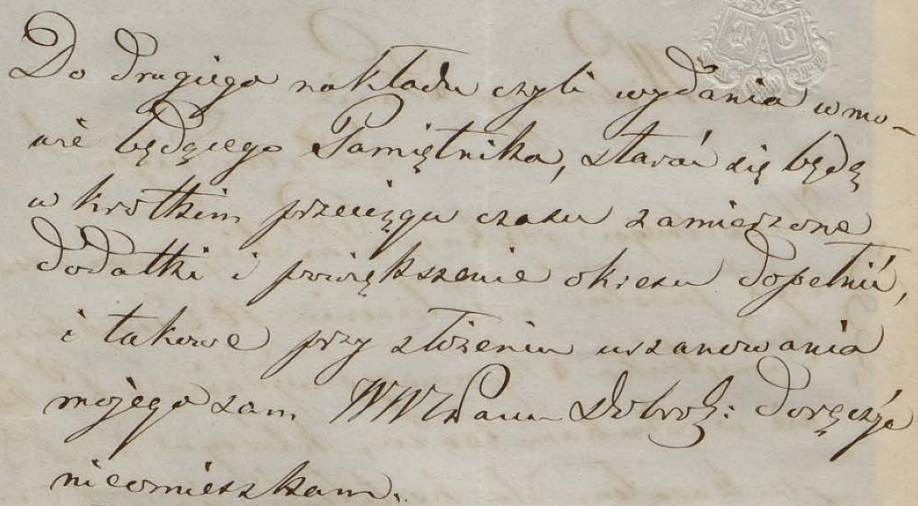 Do drugiego nakładu czyli wydania w mo-
wie będącego Pamiętnika, starać się będę
w krótkim przeciągu czasu zamierzone
dodatki i powiększenie okresu dopełnić,
i takowe przy złożeniu uszanowania
mojego sam WW Panu Dobrodz: doręczyć
nieomieszkam.